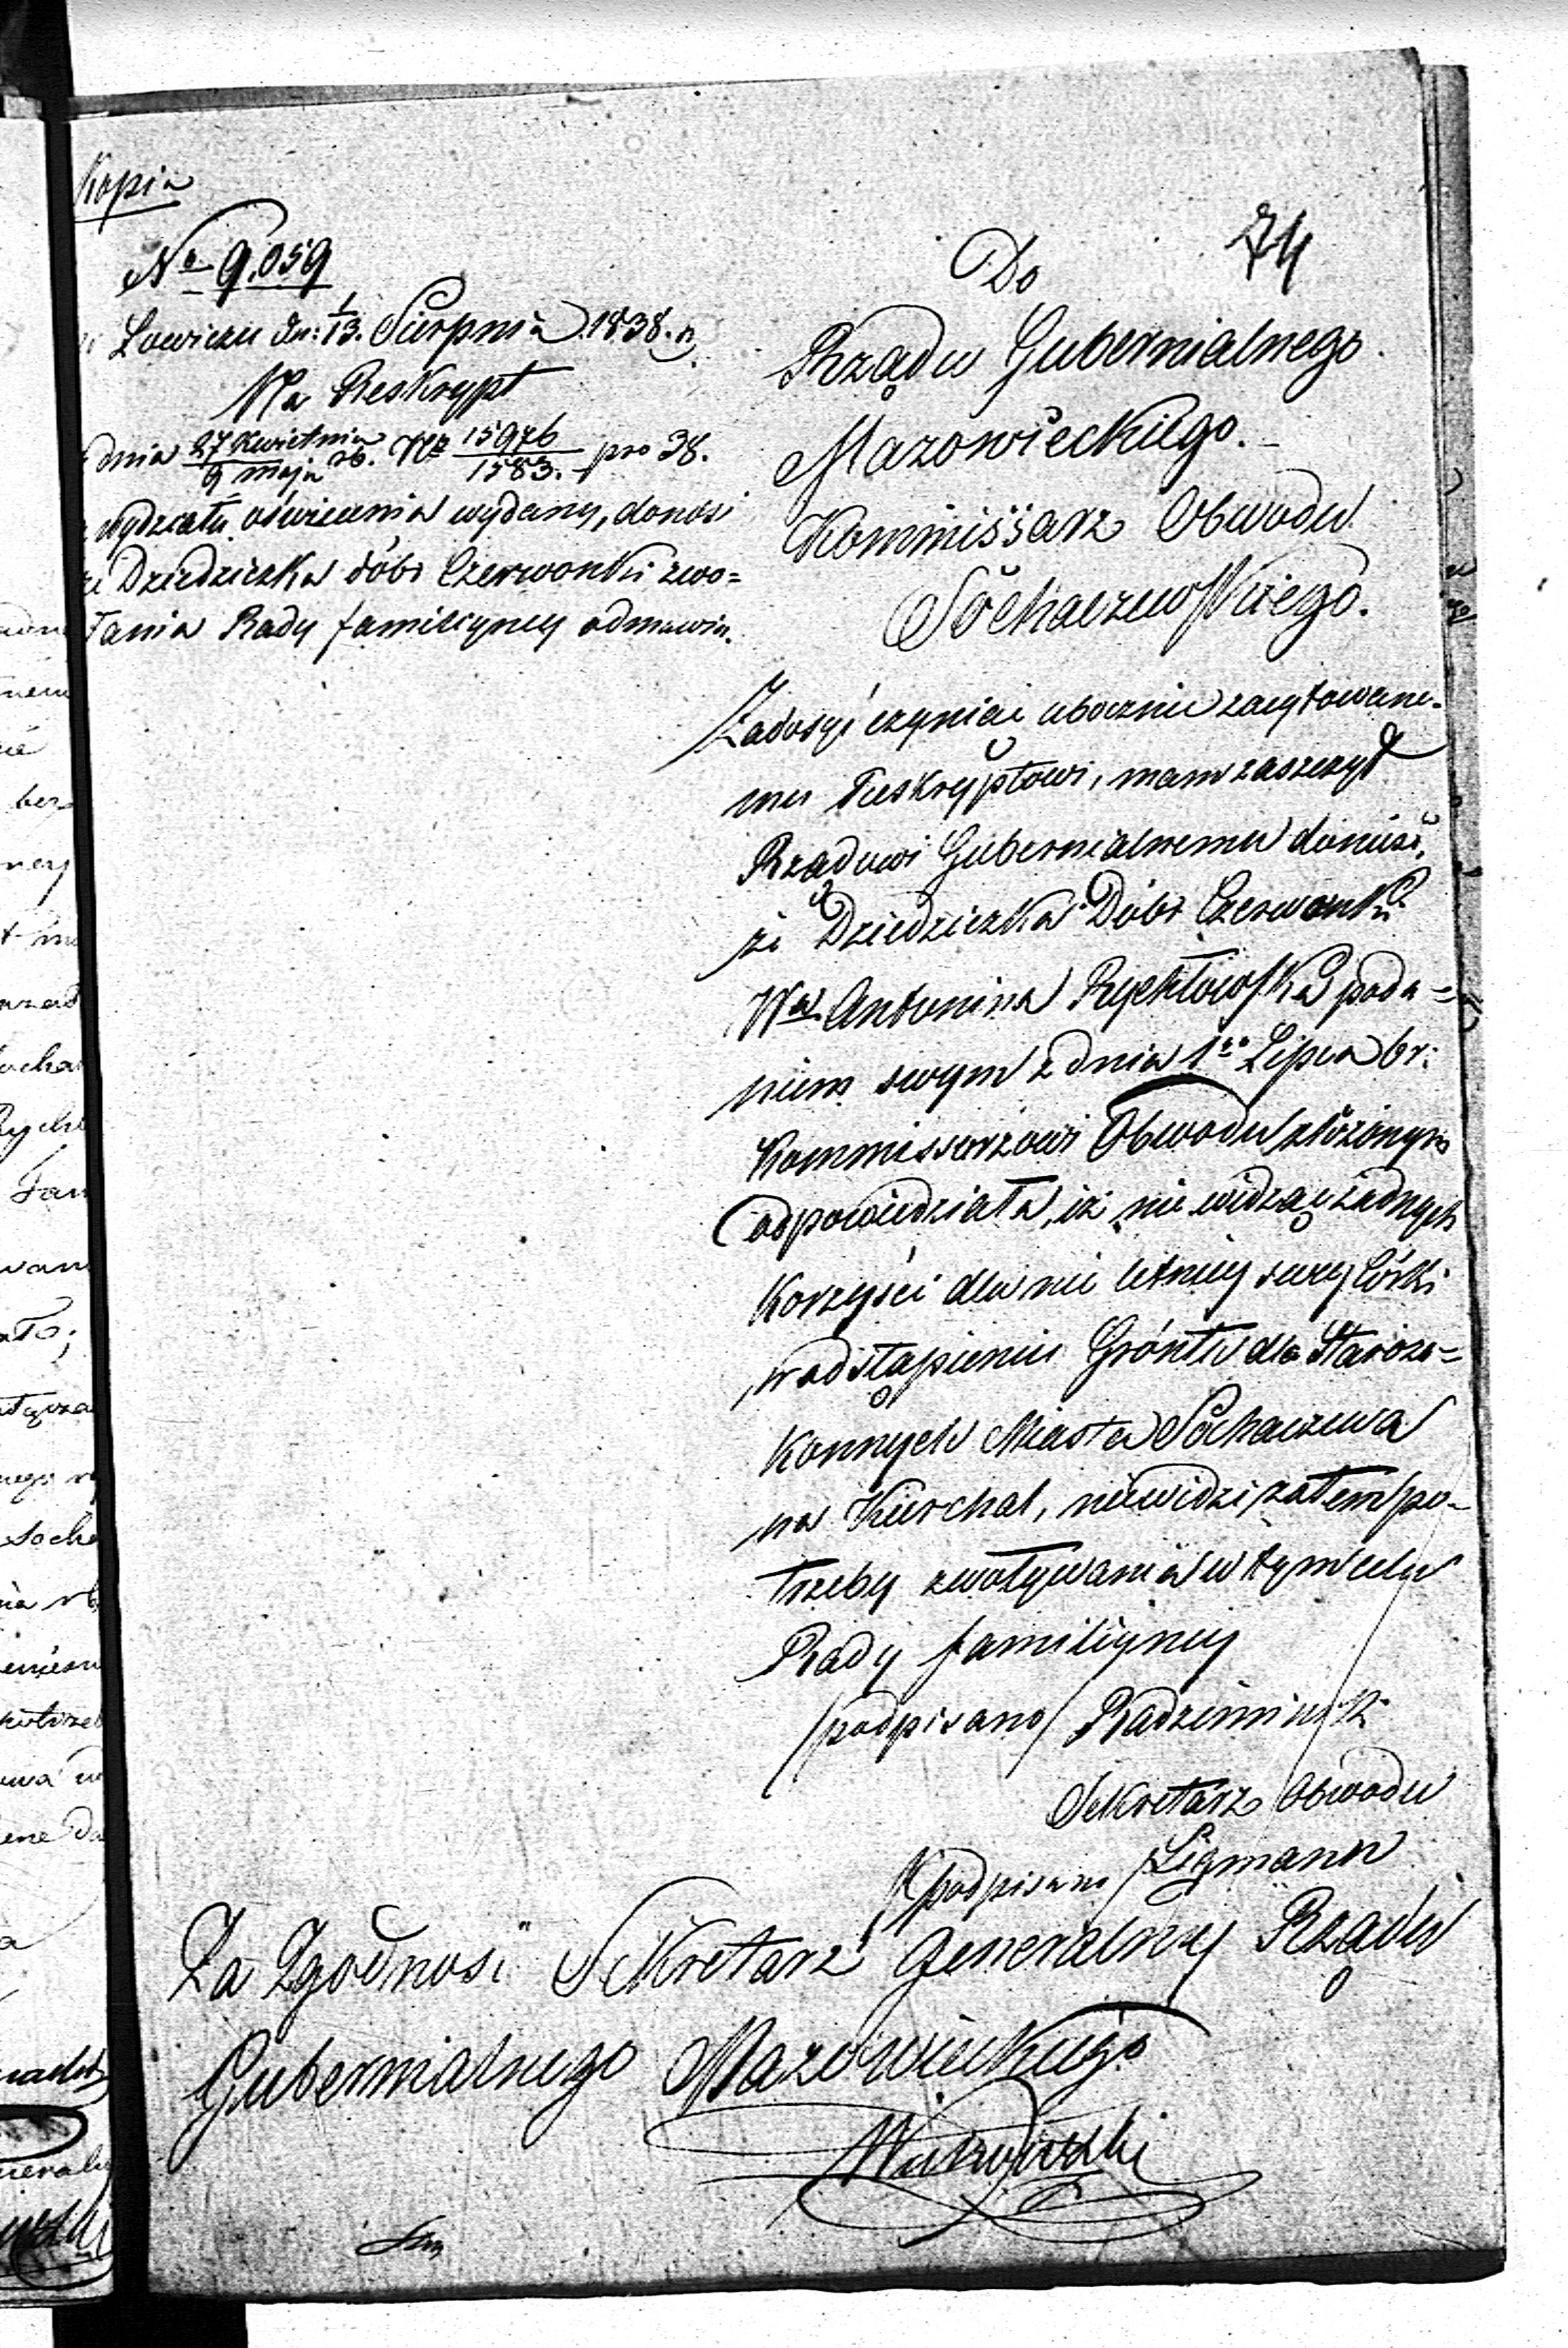 Kopia
74
No 9.059
w Łowiczu dn: 1/13. Sierpnia 1838. r.
Na Reskrypt
z dnia 27 Kwietnia / 9 Maja rb. Nr 15976/1583. pro 38.
z Wydziału oświecenia wydany, donosi
że Dziedziczka dóbr Czerwonki zwo=
łania Rady familiyney odmawia.
Do
Rządu Gubernialnego
Mazowieckiego.
Kommissarz Obwodu
Sochaczewskiego.
Zadosyć czyniąc ubocznie zacytowane-
mu Reskryptowi, mam zaszczyt
Rządowi Gubernialnemu donieść,
że Dziedziczka Dóbr Czerwonki
Wa Antonina Rychłowska poda=
niem swym z dnia 1go Lipca br:
Kommissarzowi Obwodu złożonym
odpowiedziała, iż nie widząc żadnych
Korzyści dla nie letniey swey Córki
w odstąpieniu Gróntu dla Staroza=
konnych Miasta Sochaczewa
na Kierchal, niewidzi zatem po-
trzeby zwoływania w tym celu
Rady familiyney
/podpisano/ Radzimiński
Sekretarz Obwodu
/podpisano/ Ligmann
Za Zgodność Sekretarz Generalny Rządu
Gubernialnego Mazowieckiego